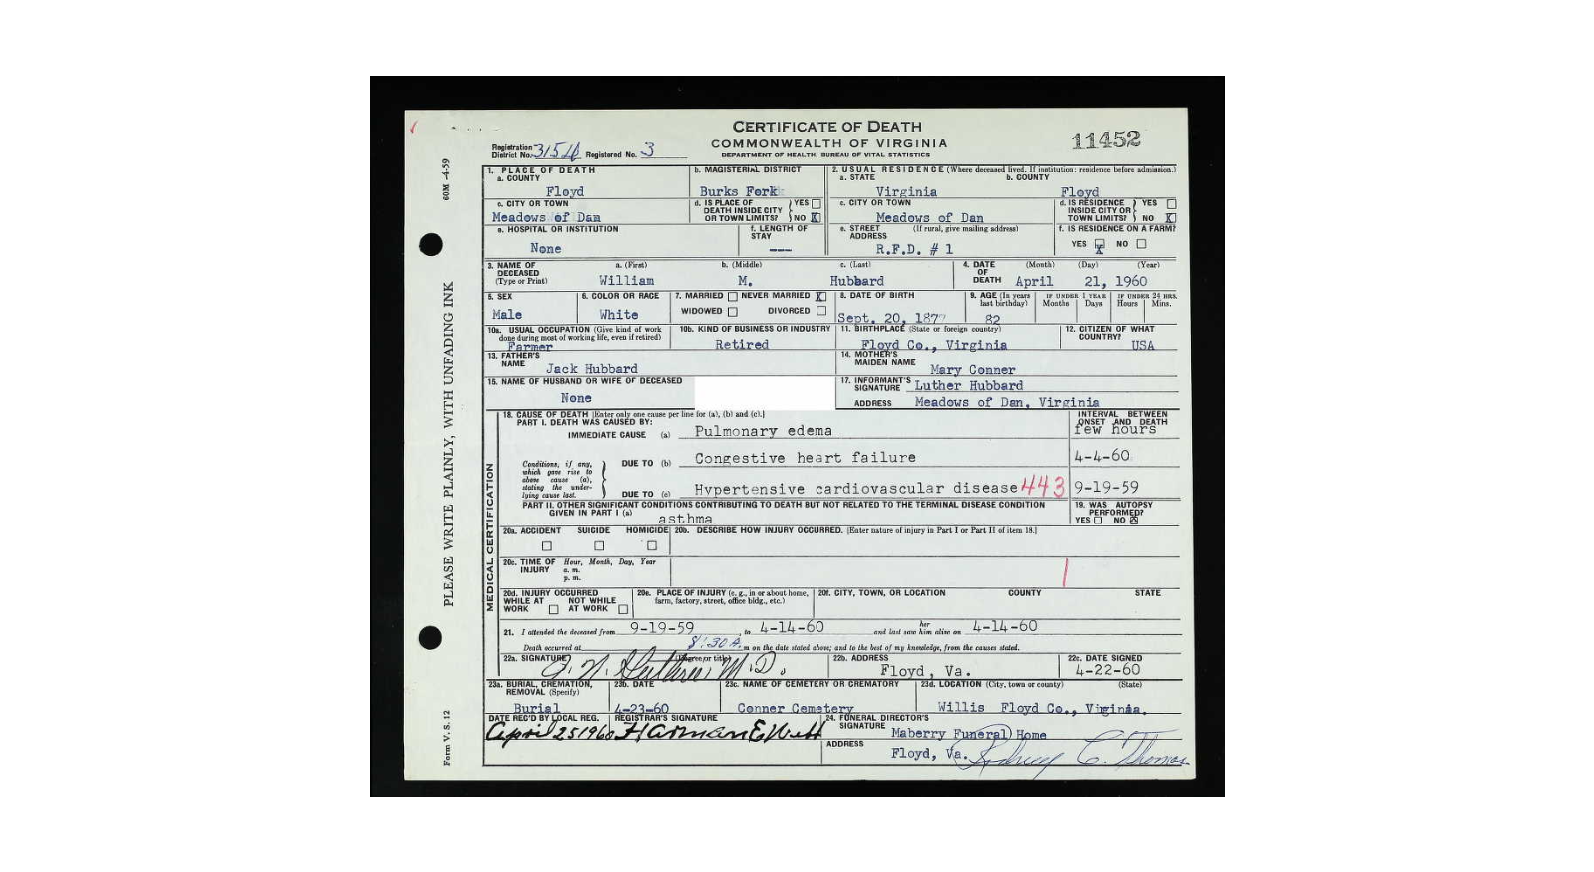 CERTIFICATE OF DEATH
COMMONWEALTH OF VIRGINIA
DEPARTMENT OF HEALTH BUREAU OF VITAL STATISTICS
11452
Registration District No. Registered No. 3
60M -4-59
PLEASE WRITE PLAINLY, WITH UNFADING INK
Form V. S. 12
1. PLACE OF DEATH
a. COUNTY
Floyd
b. MAGISTERIAL DISTRICT
Burks Fork
2. USUAL RESIDENCE (Where deceased lived. If institution: residence before admission.)
a. STATE
Virginia
b. COUNTY
Floyd
c. CITY OR TOWN
Meadows of Dan
d. IS PLACE OF DEATH INSIDE CITY OR TOWN LIMITS? YES NO X
c. CITY OR TOWN
Meadows of Dan
d. IS RESIDENCE INSIDE CITY OR TOWN LIMITS? YES NO X
e. HOSPITAL OR INSTITUTION
None
f. LENGTH OF STAY
---
e. STREET ADDRESS (If rural, give mailing address)
R.F.D. # 1
f. IS RESIDENCE ON A FARM?
YES X NO
3. NAME OF DECEASED (Type or Print)
a. (First) b. (Middle) c. (Last)
William M. Hubbard
4. DATE OF DEATH (Month) (Day) (Year)
April 21, 1960
5. SEX
Male
6. COLOR OR RACE
White
7. MARRIED NEVER MARRIED X
WIDOWED DIVORCED
8. DATE OF BIRTH
Sept. 20, 1877
9. AGE (In years last birthday)
82
IF UNDER 1 YEAR
Months Days
IF UNDER 24 HRS.
Hours Mins.
10a. USUAL OCCUPATION (Give kind of work done during most of working life, even if retired)
Farmer
10b. KIND OF BUSINESS OR INDUSTRY
Retired
11. BIRTHPLACE (State or foreign country)
Floyd Co., Virginia
12. CITIZEN OF WHAT COUNTRY?
USA
13. FATHER'S NAME
Jack Hubbard
14. MOTHER'S MAIDEN NAME
Mary Conner
15. NAME OF HUSBAND OR WIFE OF DECEASED
None
17. INFORMANT'S SIGNATURE Luther Hubbard
ADDRESS Meadows of Dan, Virginia
MEDICAL CERTIFICATION
18. CAUSE OF DEATH [Enter only one cause per line for (a), (b) and (c).]
PART I. DEATH WAS CAUSED BY:
IMMEDIATE CAUSE (a) Pulmonary edema
INTERVAL BETWEEN ONSET AND DEATH
few hours
Conditions, if any, which gave rise to above cause (a), stating the underlying cause last.
DUE TO (b) Congestive heart failure 4-4-60
DUE TO (c) Hypertensive cardiovascular disease 443 9-19-59
PART II. OTHER SIGNIFICANT CONDITIONS CONTRIBUTING TO DEATH BUT NOT RELATED TO THE TERMINAL DISEASE CONDITION GIVEN IN PART I (a)
asthma
19. WAS AUTOPSY PERFORMED?
YES NO X
20a. ACCIDENT SUICIDE HOMICIDE
20b. DESCRIBE HOW INJURY OCCURRED. [Enter nature of injury in Part I or Part II of item 18.]
20c. TIME OF INJURY Hour, Month, Day, Year
a. m.
p. m.
20d. INJURY OCCURRED
WHILE AT WORK NOT WHILE AT WORK
20e. PLACE OF INJURY (e. g., in or about home, farm, factory, street, office bldg., etc.)
20f. CITY, TOWN, OR LOCATION COUNTY STATE
21. I attended the deceased from 9-19-59, to 4-14-60 and last saw her him alive on 4-14-60
Death occurred at 8:30 A. m on the date stated above; and to the best of my knowledge, from the causes stated.
22a. SIGNATURE (Degree or title)
M.D.
22b. ADDRESS
Floyd, Va.
22c. DATE SIGNED
4-22-60
23a. BURIAL, CREMATION, REMOVAL (Specify)
Burial
23b. DATE
4-23-60
23c. NAME OF CEMETERY OR CREMATORY
Conner Cemetery
23d. LOCATION (City, town or county) (State)
Willis Floyd Co., Virginia.
DATE REC'D BY LOCAL REG.
April 25 1960
REGISTRAR'S SIGNATURE
Harman E Webb
24. FUNERAL DIRECTOR'S SIGNATURE
Maberry Funeral Home
ADDRESS
Floyd, Va. Rodney C. Thomas